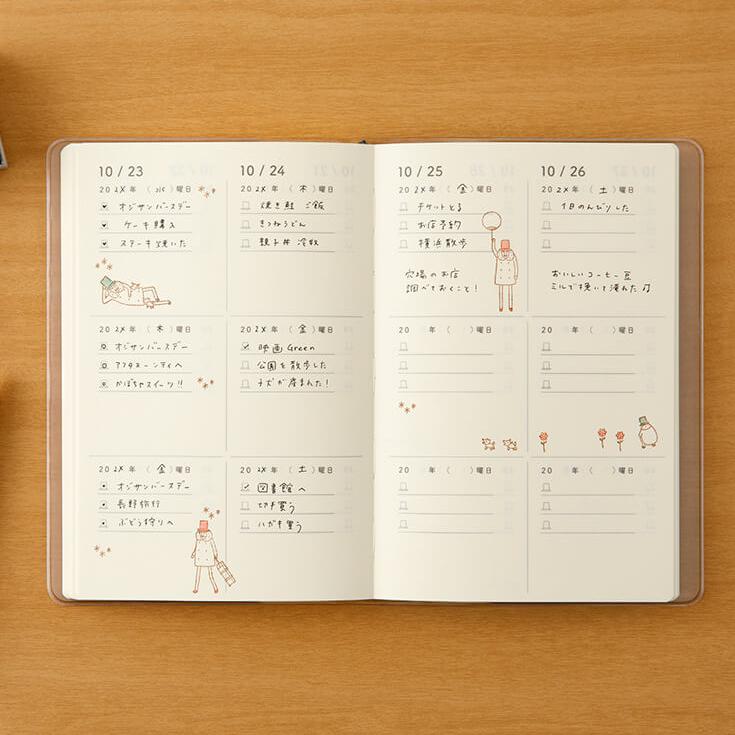 10 / 23
202X年 (水)曜日
オジサンバースデー
ケーキ購入
ステーキ焼いた
202X年 (木)曜日
オジサンバースデー
アフタヌーンティへ
かぼちゃスイーツ!!
202X年 (金)曜日
オジサンバースデー
長野旅行
ぶどう狩りへ
10 / 24
202X年 (木)曜日
焼き鮭 ご飯
きつねうどん
親子丼 冷奴
202X年 (金)曜日
映画 Green
公園を散歩した
子犬が産まれた!
202X年 (土)曜日
図書館へ
切手買う
ハガキ買う
10 / 25
202X年 (金)曜日
チケットとる
お店予約
横浜散歩
穴場のお店
調べておくこと!
20 年 ( )曜日
20 年 ( )曜日
10 / 26
202X年 (土)曜日
1日のんびりした
おいしいコーヒー豆
ミルで挽いて淹れた♫
20 年 ( )曜日
20 年 ( )曜日